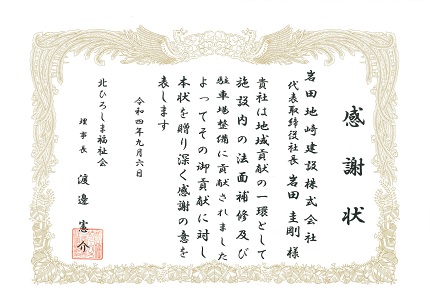 感謝状
岩田地崎建設株式会社
代表取締役社長 岩田圭剛様
貴社は地域貢献の一環として
施設内の法面補修及び
駐車場整備に貢献されました
よってその御貢献に対し
本状を贈り深く感謝の意を
表します
令和四年九月六日
北ひろしま福祉会
理事長 渡邉憲介